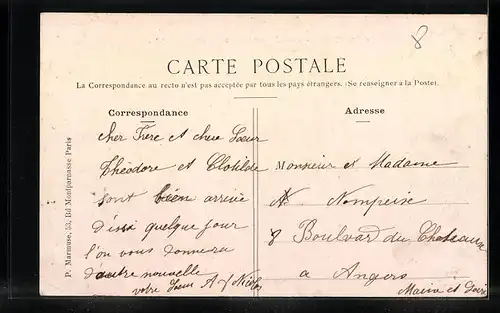 8
CARTE POSTALE
La Correspondance au recto n'est pas acceptée par tous les pays étrangers. (Se renseigner à la Poste).
Correspondance
cher Frere et chere Soeur
Théodore et Clotilde
sont bien arrivé
d'issi quelque jour
l'on vous donnera
d'autre nouvelle
votre Soeur
Adresse
Monsieur et Madame
Nompeixe
8 Boulvard du Chateaux
a Angers
Maine et Loire
P. Marmuse, 53, Bd Montparnasse Paris